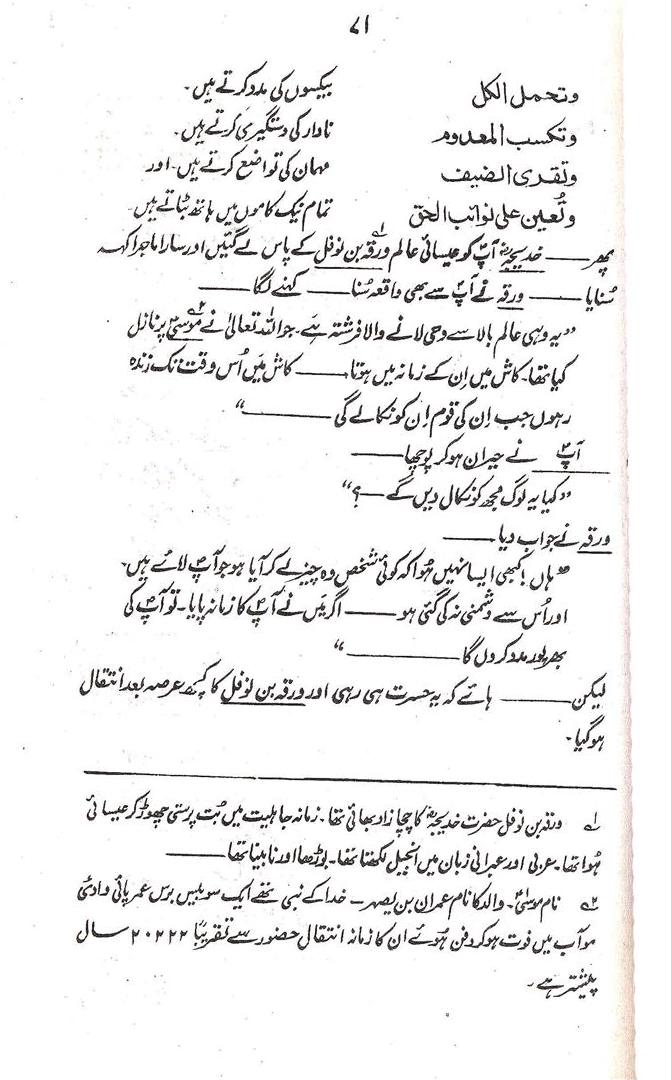 ۷۱
وتحمل الكل بیکسوں کی مدد کرتے ہیں۔
وتكسب المعدوم نادار کی دستگیری کرتے ہیں۔
وتقدى الضيف مہمان کی تواضع کرتے ہیں۔ اور
وتُعين على نوائب الحق تمام نیک کاموں میں ہاتھ بٹاتے ہیں۔
پھر ــــ خدیجہؓ آپؐ کو عیسائی عالم ورقہ بن نوفل۱؎ کے پاس لے گئیں اور سارا ماجرا کہہ
سُنایا ــــ ورقہ نے آپؐ سے بھی واقعہ سُنا ــــ کہنے لگا ــــ
”یہ وہی عالم بالا سے وحی لانے والا فرشتہ ہے۔ جو اللہ تعالیٰ نے موسیٰؑ۲؎ پر نازل
کیا تھا۔ کاش میں اِن کے زمانہ میں ہوتا ــــ کاش میَں اُس وقت تک زندہ
رہوں جب اِن کی قوم اِن کو نکالے گی ــــ “
آپؐ نے حیران ہو کر پوچھا ــــ
”کیا یہ لوگ مجھ کو نکال دیں گے ــ؟“
ورقہ نے جواب دیا ــــ
”ہاں! کبھی ایسا نہیں ہُوا کہ کوئی شخص وہ چیز لے کر آیا ہو جو آپؐ لائے ہیں۔
اور اُس سے دشمنی نہ کی گئی ہو ــــ اگر میَں نے آپؐ کا زمانہ پایا۔ تو آپؐ کی
بھرپور مدد کروں گا ــــ “
لیکن ــــ ہائے کہ یہ حسرت ہی رہی اور ورقہ بن نوفل کا کچھ عرصہ بعد انتقال
ہو گیا۔
۱؎ ورقہ بن نوفل حضرت خدیجہؓ کا چچا زاد بھائی تھا۔ زمانہ جاہلیت میں بُت پرستی چھوڑ کر عیسائی
ہُوا تھا۔ عربی اور عبرانی زبان میں انجیل لکھتا تھا۔ بوڑھا اور نابینا تھا ــــ
۲؎ نام موسیٰؑ۔ والد کا نام عمران بن یصہر ــ خدا کے نبی تھے ایک سو بیس برس عمر پائی وادئ
موآب میں فوت ہو کر دفن ہُوئے ان کا زمانہ انتقال حضور سے تقریباً ۲۰۲۲۲ سال
پیشتر ہے۔